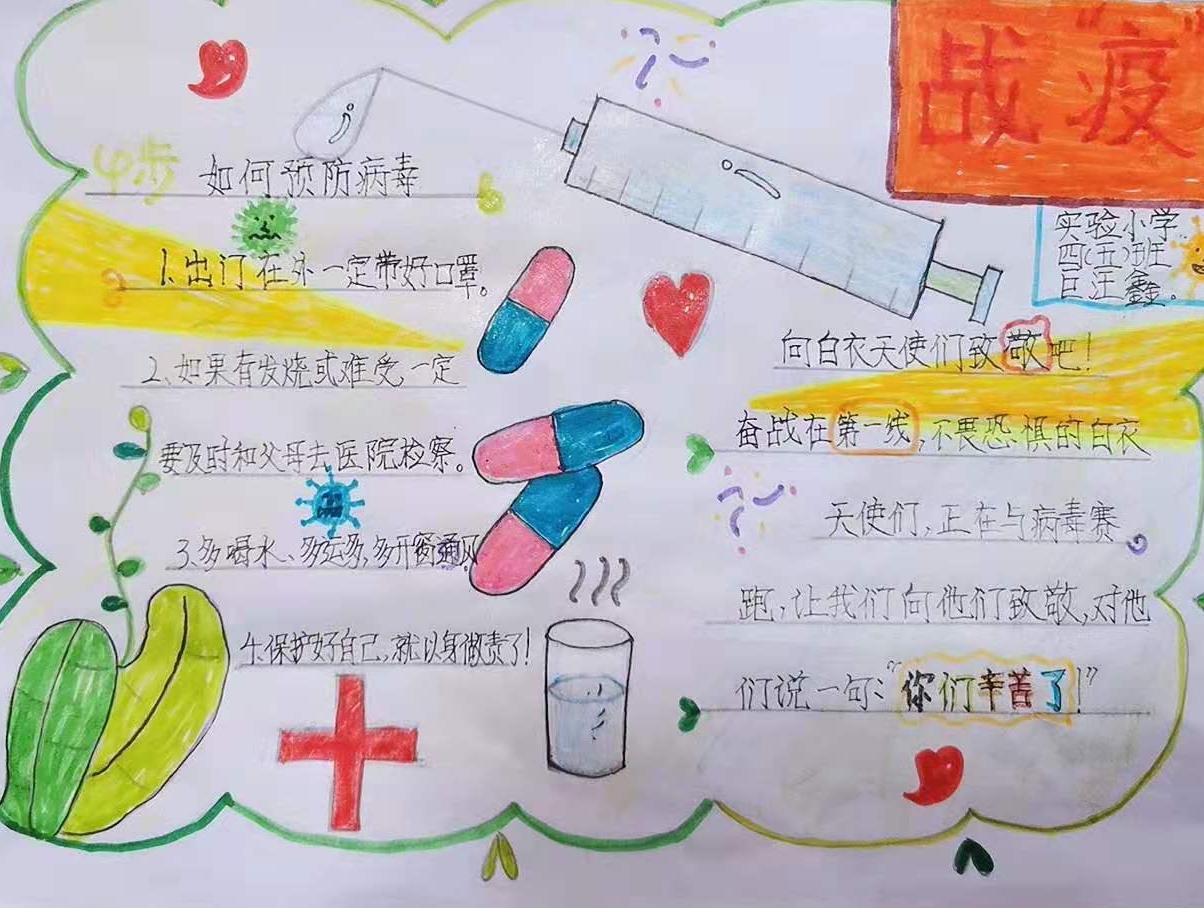 战"疫"
实验小学
四(五)班
巨汪鑫。
4步 如何预防病毒
1、出门在外一定带好口罩。
2、如果有发烧或难受,一定
要及时和父母去医院检察。
3、多喝水、多运动,多开窗通风
4、保护好自己,就以身做责了!
向白衣天使们致敬吧!
奋战在第一线,不畏恐惧的白衣
天使们,正在与病毒赛
跑,让我们向他们致敬,对他
们说一句:"你们辛苦了!"